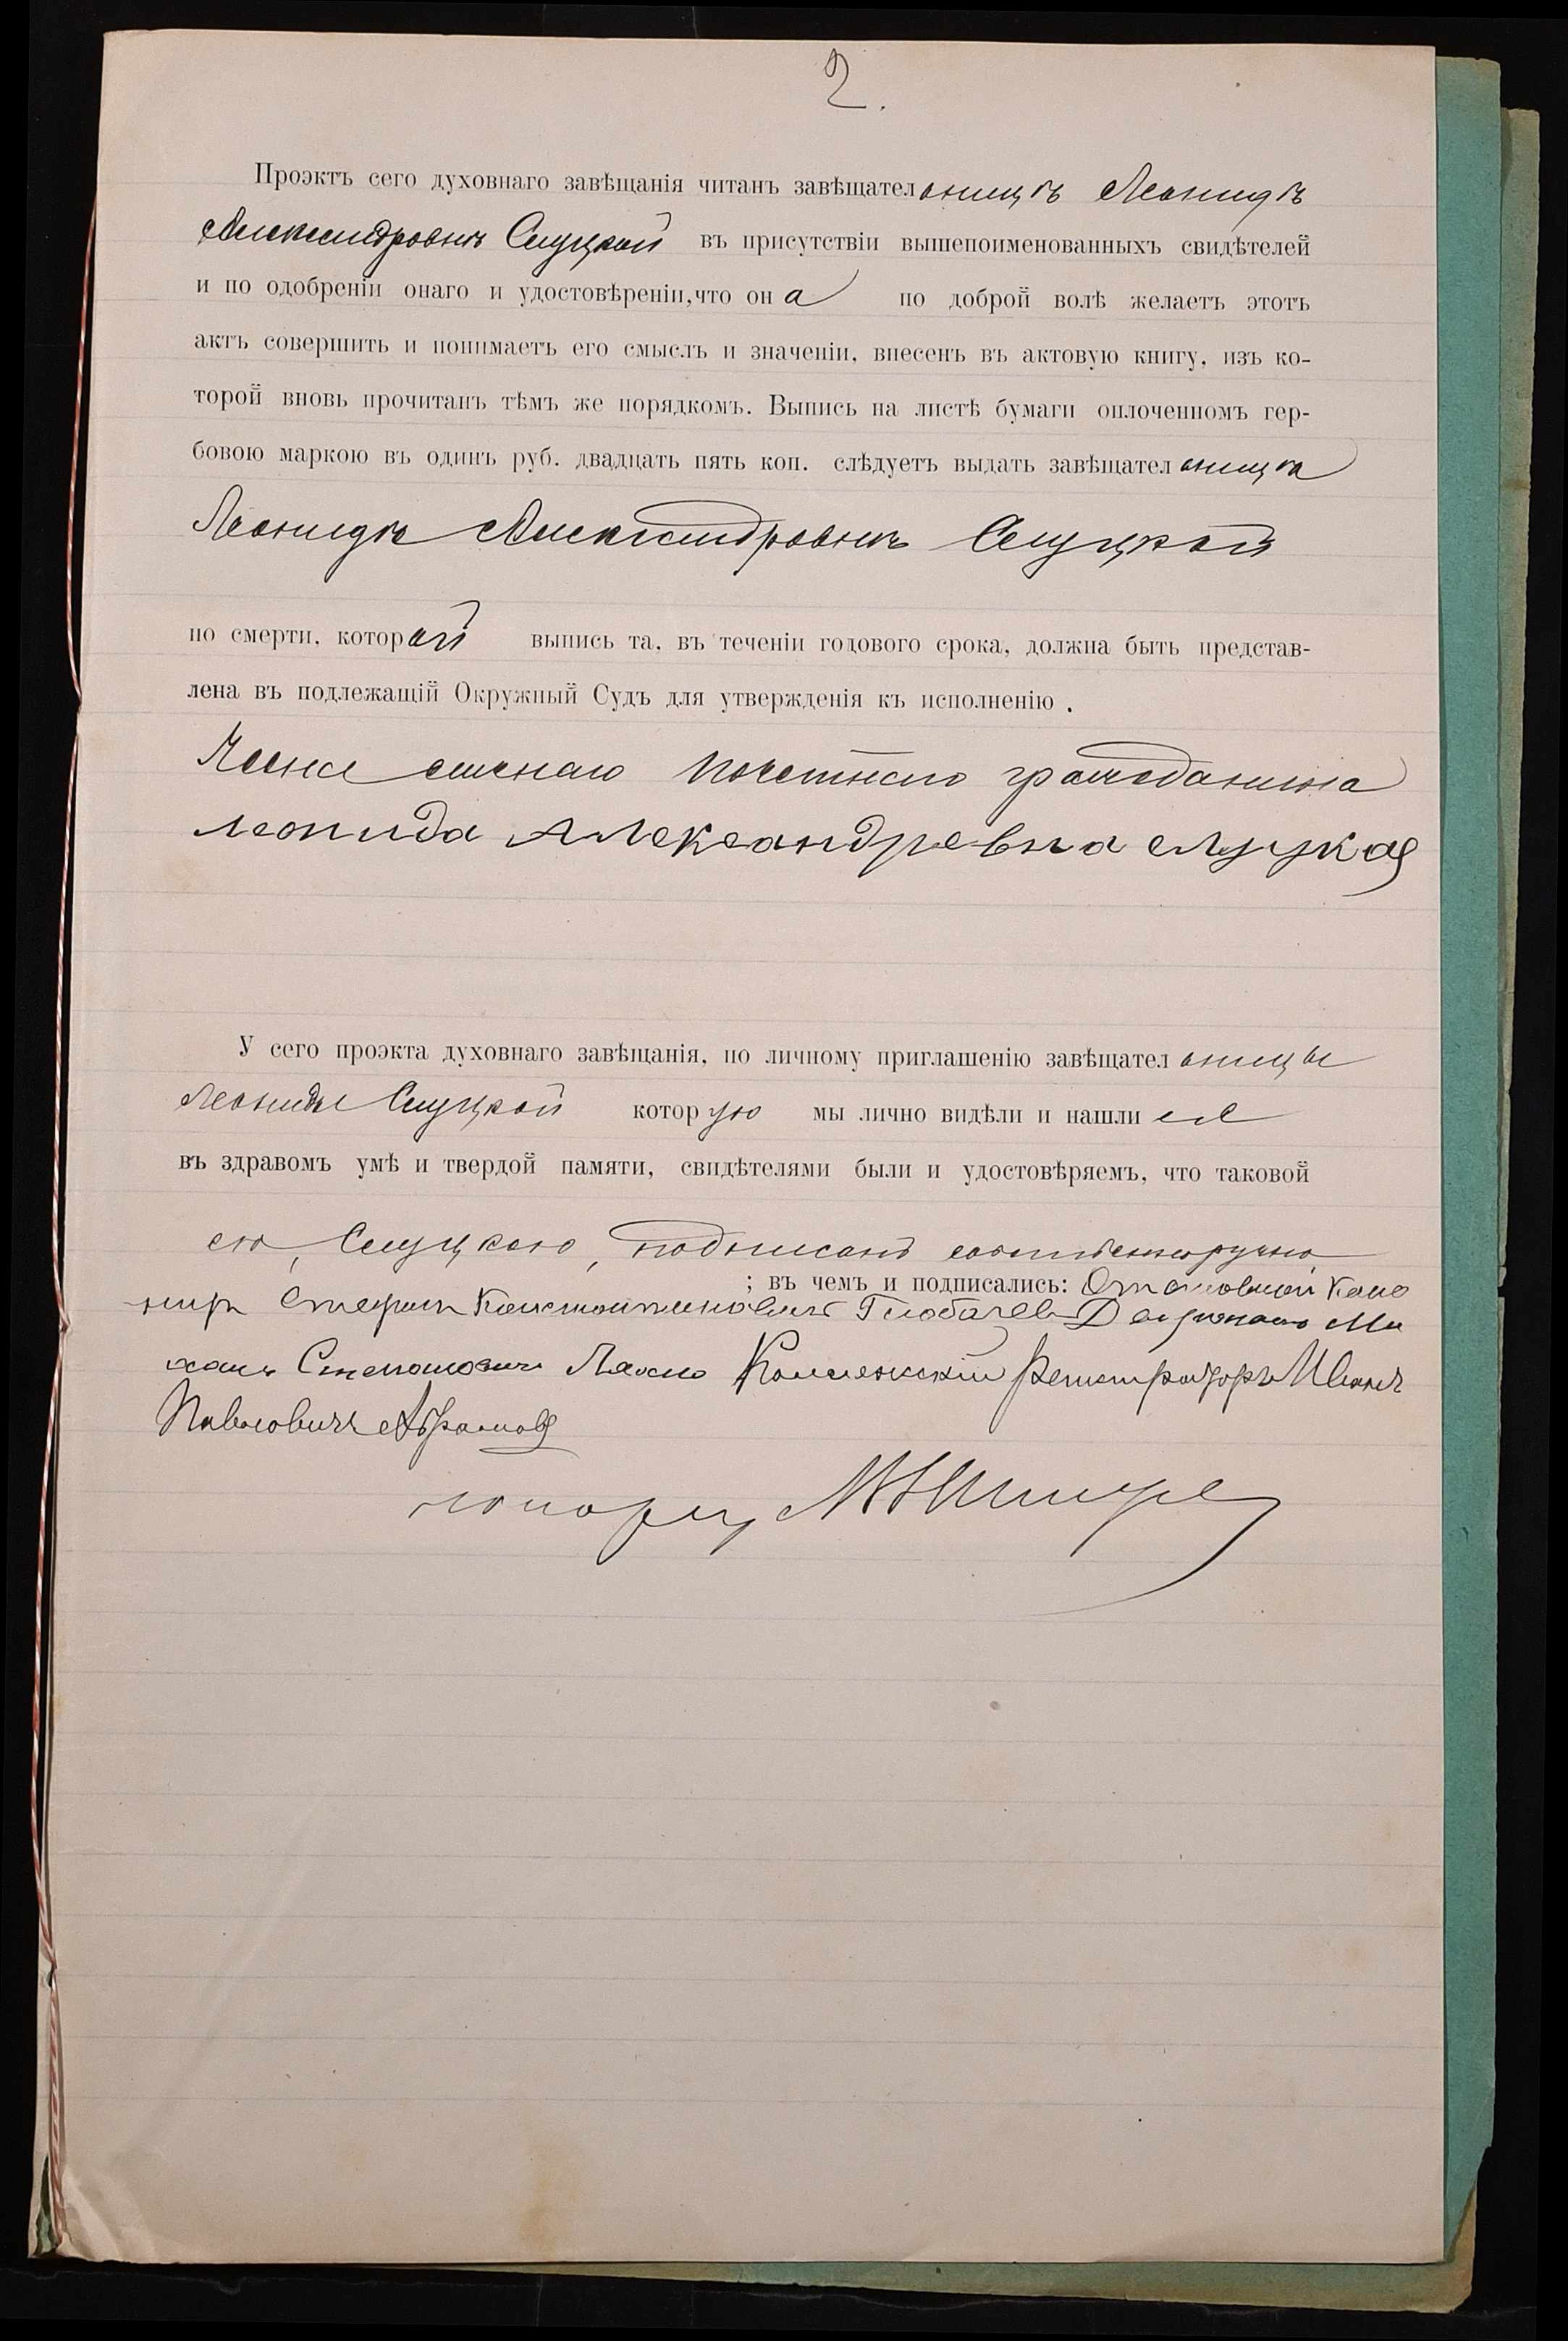 2.
Проэктъ сего духовнаго завѣщанія читанъ завѣщательницѣ Леонидѣ
Александровнѣ Слуцкой въ присутствіи вышепоименованныхъ свидѣтелей
и по одобреніи онаго и удостовѣреніи, что она по доброй волѣ желаетъ этотъ
актъ совершить и понимаетъ его смыслъ и значеніи, внесенъ въ актовую книгу, изъ ко-
торой вновь прочитанъ тѣмъ же порядкомъ. Выпись на листѣ бумаги оплоченномъ гер-
бовою маркою въ одинъ руб. двадцать пять коп. слѣдуетъ выдать завѣщательницѣ
Леонидѣ Александровнѣ Слуцкой
по смерти, которой выпись та, въ теченіи годового срока, должна быть представ-
лена въ подлежащій Окружный Судъ для утвержденія къ исполненію.
Жена личнаго почетнаго гражданина
леонида Александревна слуцкая
У сего проэкта духовнаго завѣщанія, по личному приглашенію завѣщательницы
Леониды Слуцкой которую мы лично видѣли и нашли ее
въ здравомъ умѣ и твердой памяти, свидѣтелями были и удостовѣряемъ, что таковой
ею, Слуцкою, подписанъ собственноручно
; въ чемъ и подписались: Отставной Кано
ниръ Стефанъ Константиновичъ Глобачев Дворянинъ Ми
хаилъ Степановичъ Ляхно Коллежскій Регистраторъ Иванъ
Павловичъ Абрамов
нотаріусъ